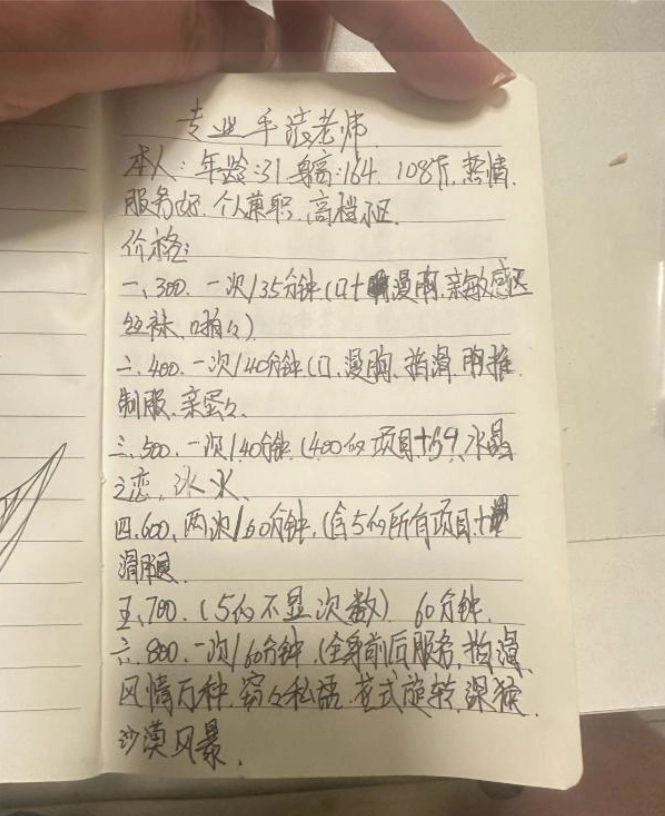 专业手法老师
本人:年龄:31.身高:164.108斤.热情.
服务好.个人兼职.高档小区.
价格:
一、300.一次/35分钟(口+漫胸.亲敏感区
丝袜.啪々)
二、400.一次/40分钟(口、漫胸、拍滑.胸推.
制服、亲蛋々、
三、500.一次/40分钟(400的项目+59、水晶
之恋、冰火、
四.600、两次/60分钟.(含5的所有项目.+
滑腿.
五、700.(5的不显次数) 60分钟.
六、800.一次/60分钟.(全身前后服务.拍滑、
风情万种.窃々私语.花式旋转.深猴.
沙漠风暴.